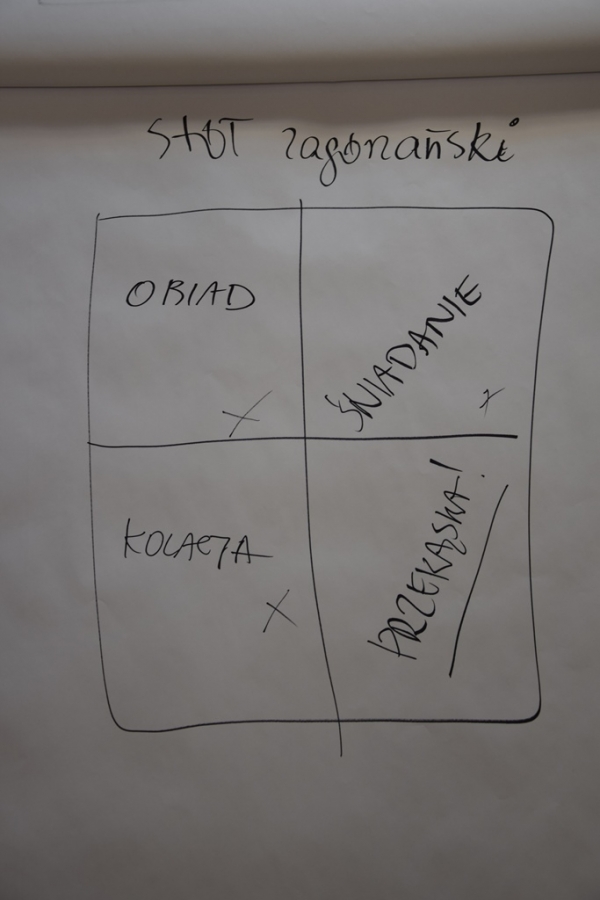 STÓŁ zagonański
OBIAD
ŚNIADANIE
X
x
KOLACJA
PRZEKĄSKA!
X